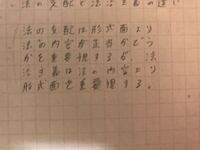 法の支配と法治主義の違い
法の支配は形式面より
法の内容が正当かどう
かを重要視するが、法
治主義は法の内容より
形式面を重要視する。